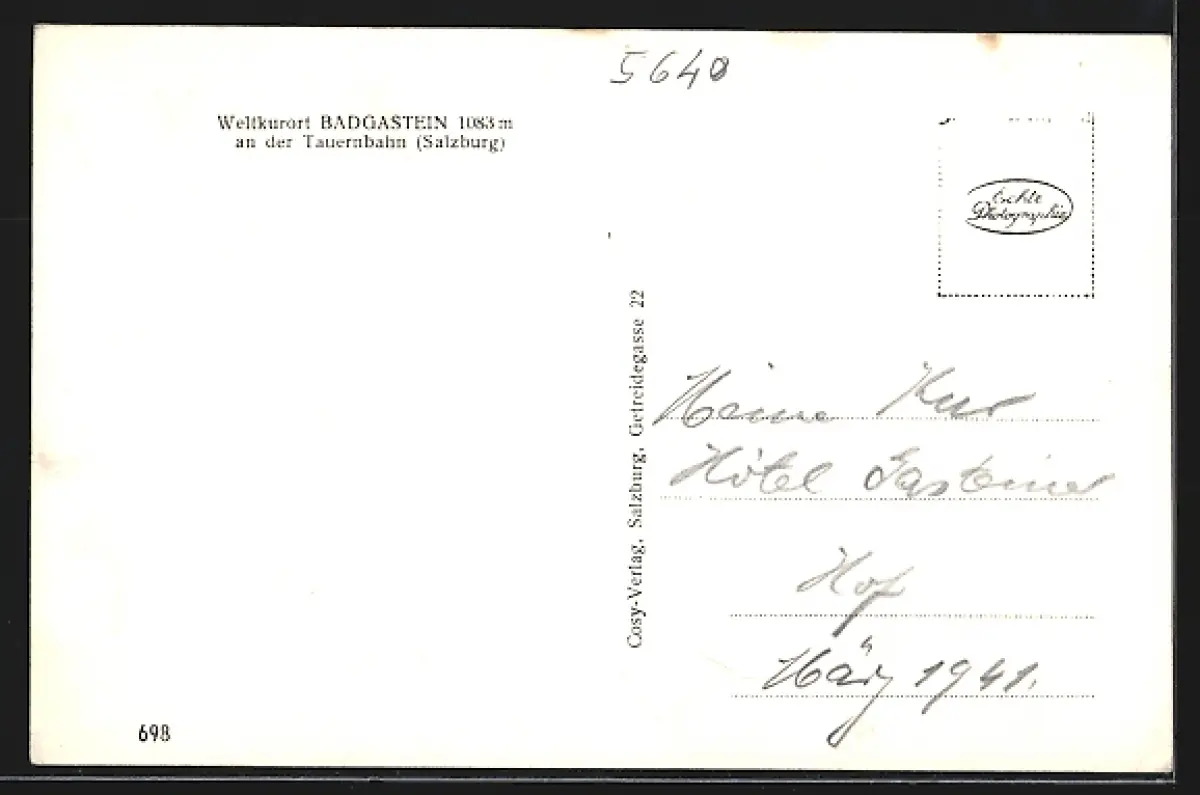 5640
Weltkurort BADGASTEIN 1083 m
an der Tauernbahn (Salzburg)
Echte
Photographie
Cosy-Verlag, Salzburg, Getreidegasse 22
Meine Kur
Hôtel Gasteiner
Hof
März 1941.
698